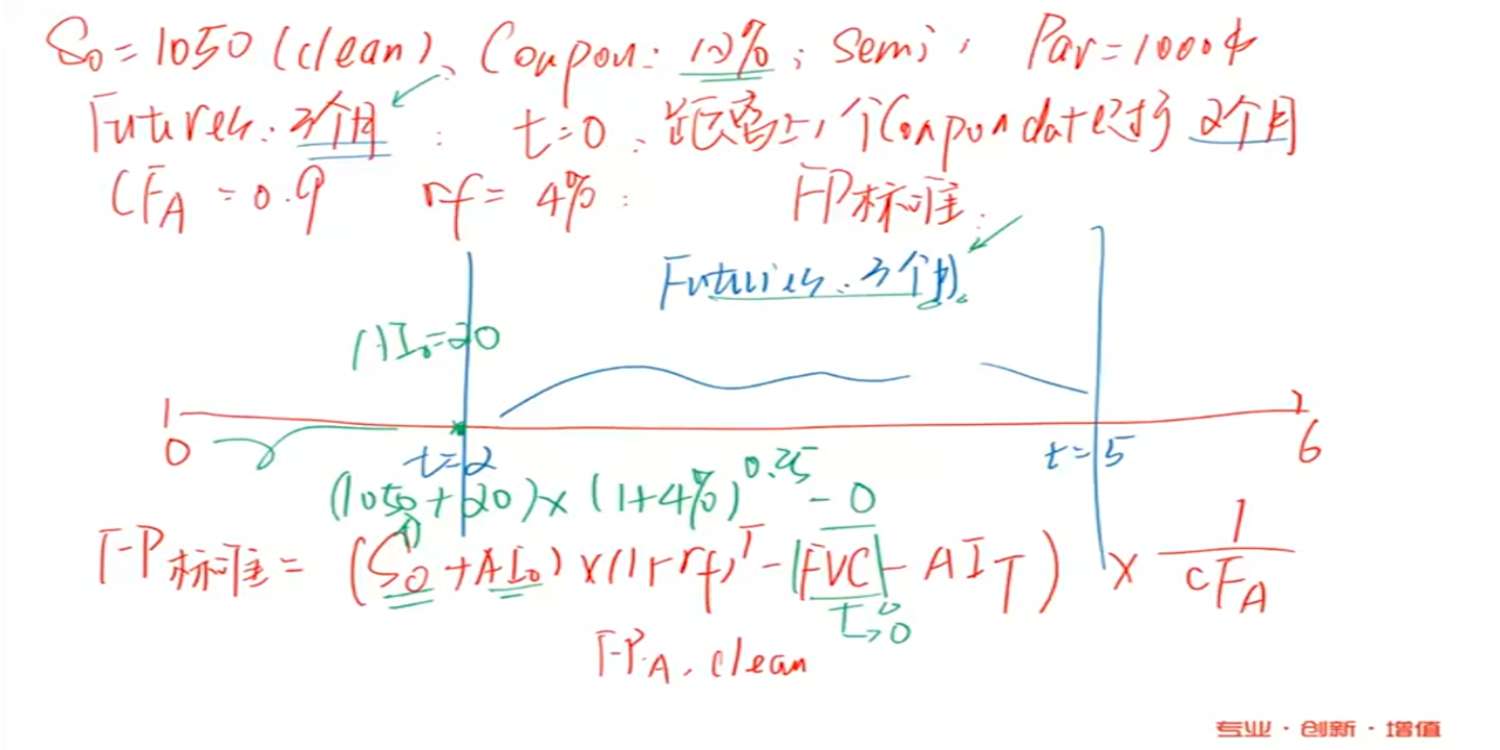 S₀=1050 (clean)、Coupon: 12%; Semi, Par=1000⇞
Futures: 3个月: t=0: 距离上1个Coupon date已过了2个月
CFA = 0.9 rf = 4%: FP标准:
Futures: 3个月
AI₀=20
0 t=2 t=5 6
(1050+20)×(1+4%)^0.25 - 0
FP标准 = (S₀+AI₀)×(1+rf)^T - FVC - AI_T) × 1/CFA
0
→0
FPA, clean
专业·创新·增值